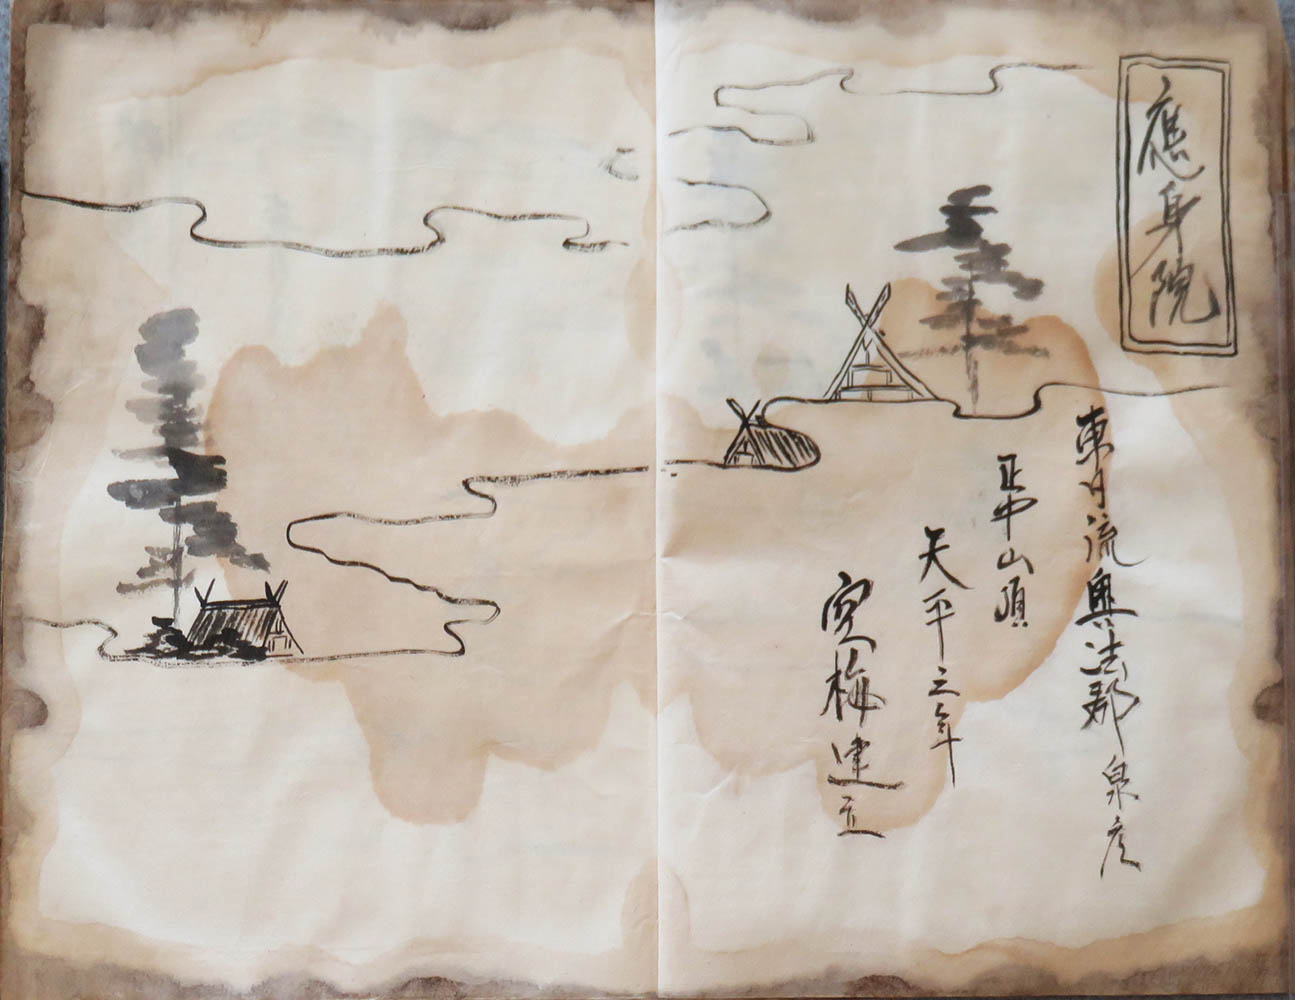 應身院
東月流奥法郡泉彦
正中山頂
天平三年
空梅建立